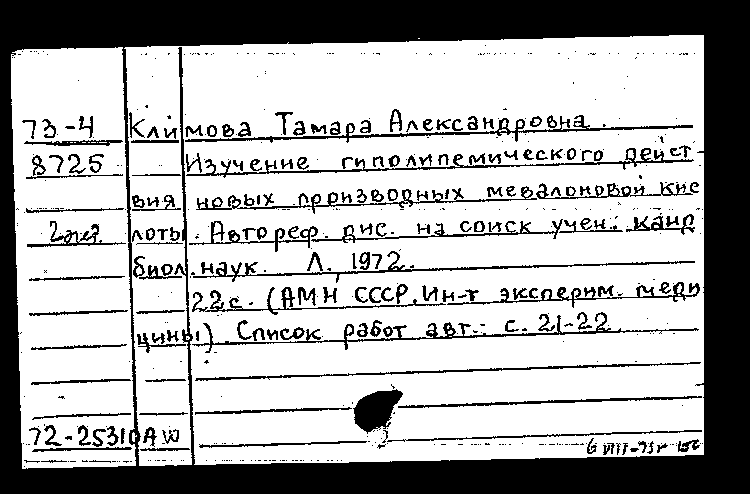 73-4 Климова Тамара Александровна.
8725 Изучение гиполипемического дейст-
вия новых производных мевалоновой кис
2 экз. лоты. Автореф. дис. на соиск учен. канд
биол. наук. Л., 1972.
22с. (АМН СССР. Ин-т эксперим. меди
цины). Список работ авт.: с. 21-22.
72-25310А W
6 VIII-73г 156